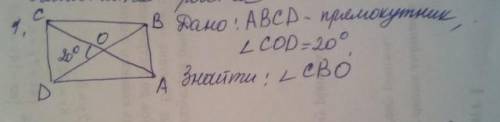 1. C B Дано: ABCD - прямокутник,
O
20° ∠COD=20°
D A Знайти: ∠CBO